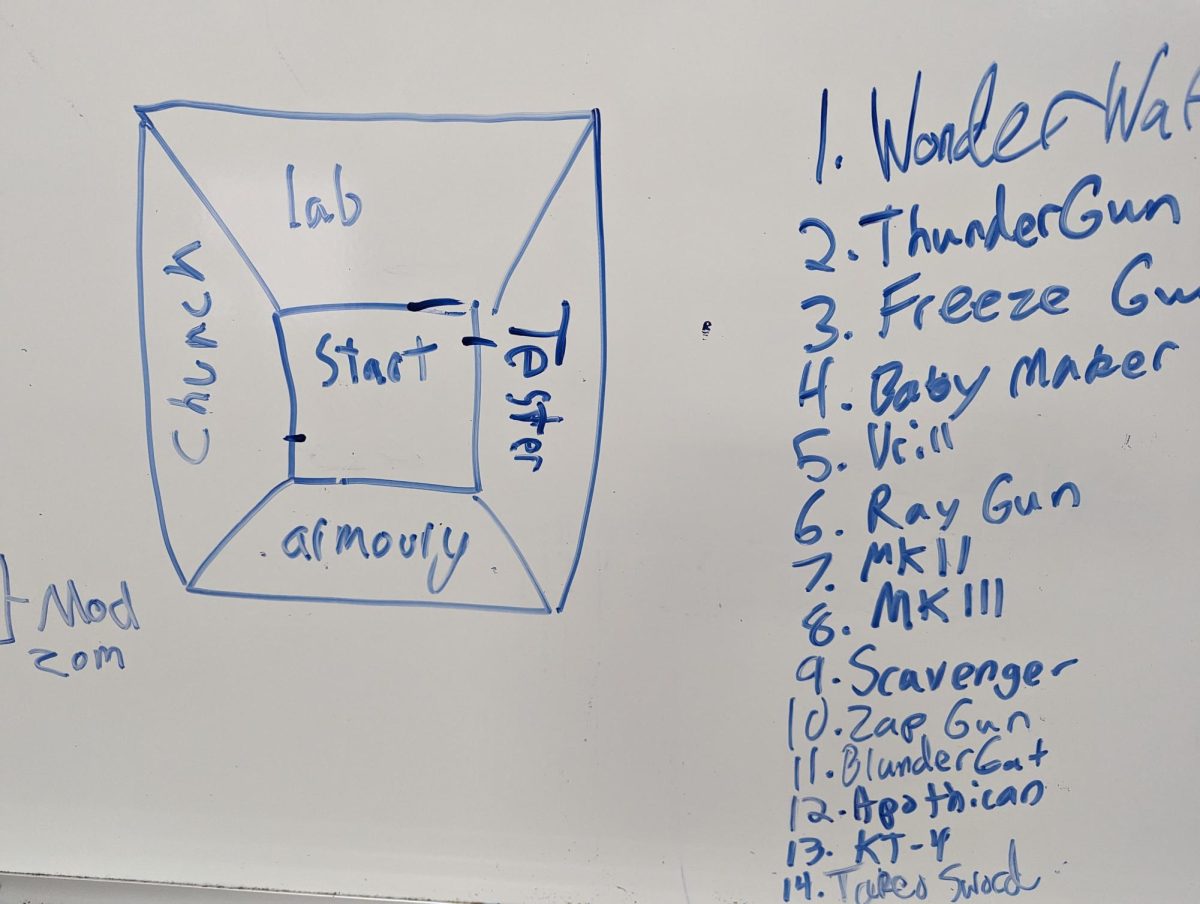 lab
Chunck
Start
Tester
armoury
Mod
zom
1. Wonder Waf
2. ThunderGun
3. Freeze Gu
4. Baby Maker
5. Vrill
6. Ray Gun
7. MK II
8. MK III
9. Scavenger
10. Zap Gun
11. BlunderGat
12. Apothican
13. KT-4
14. Takeo Sword